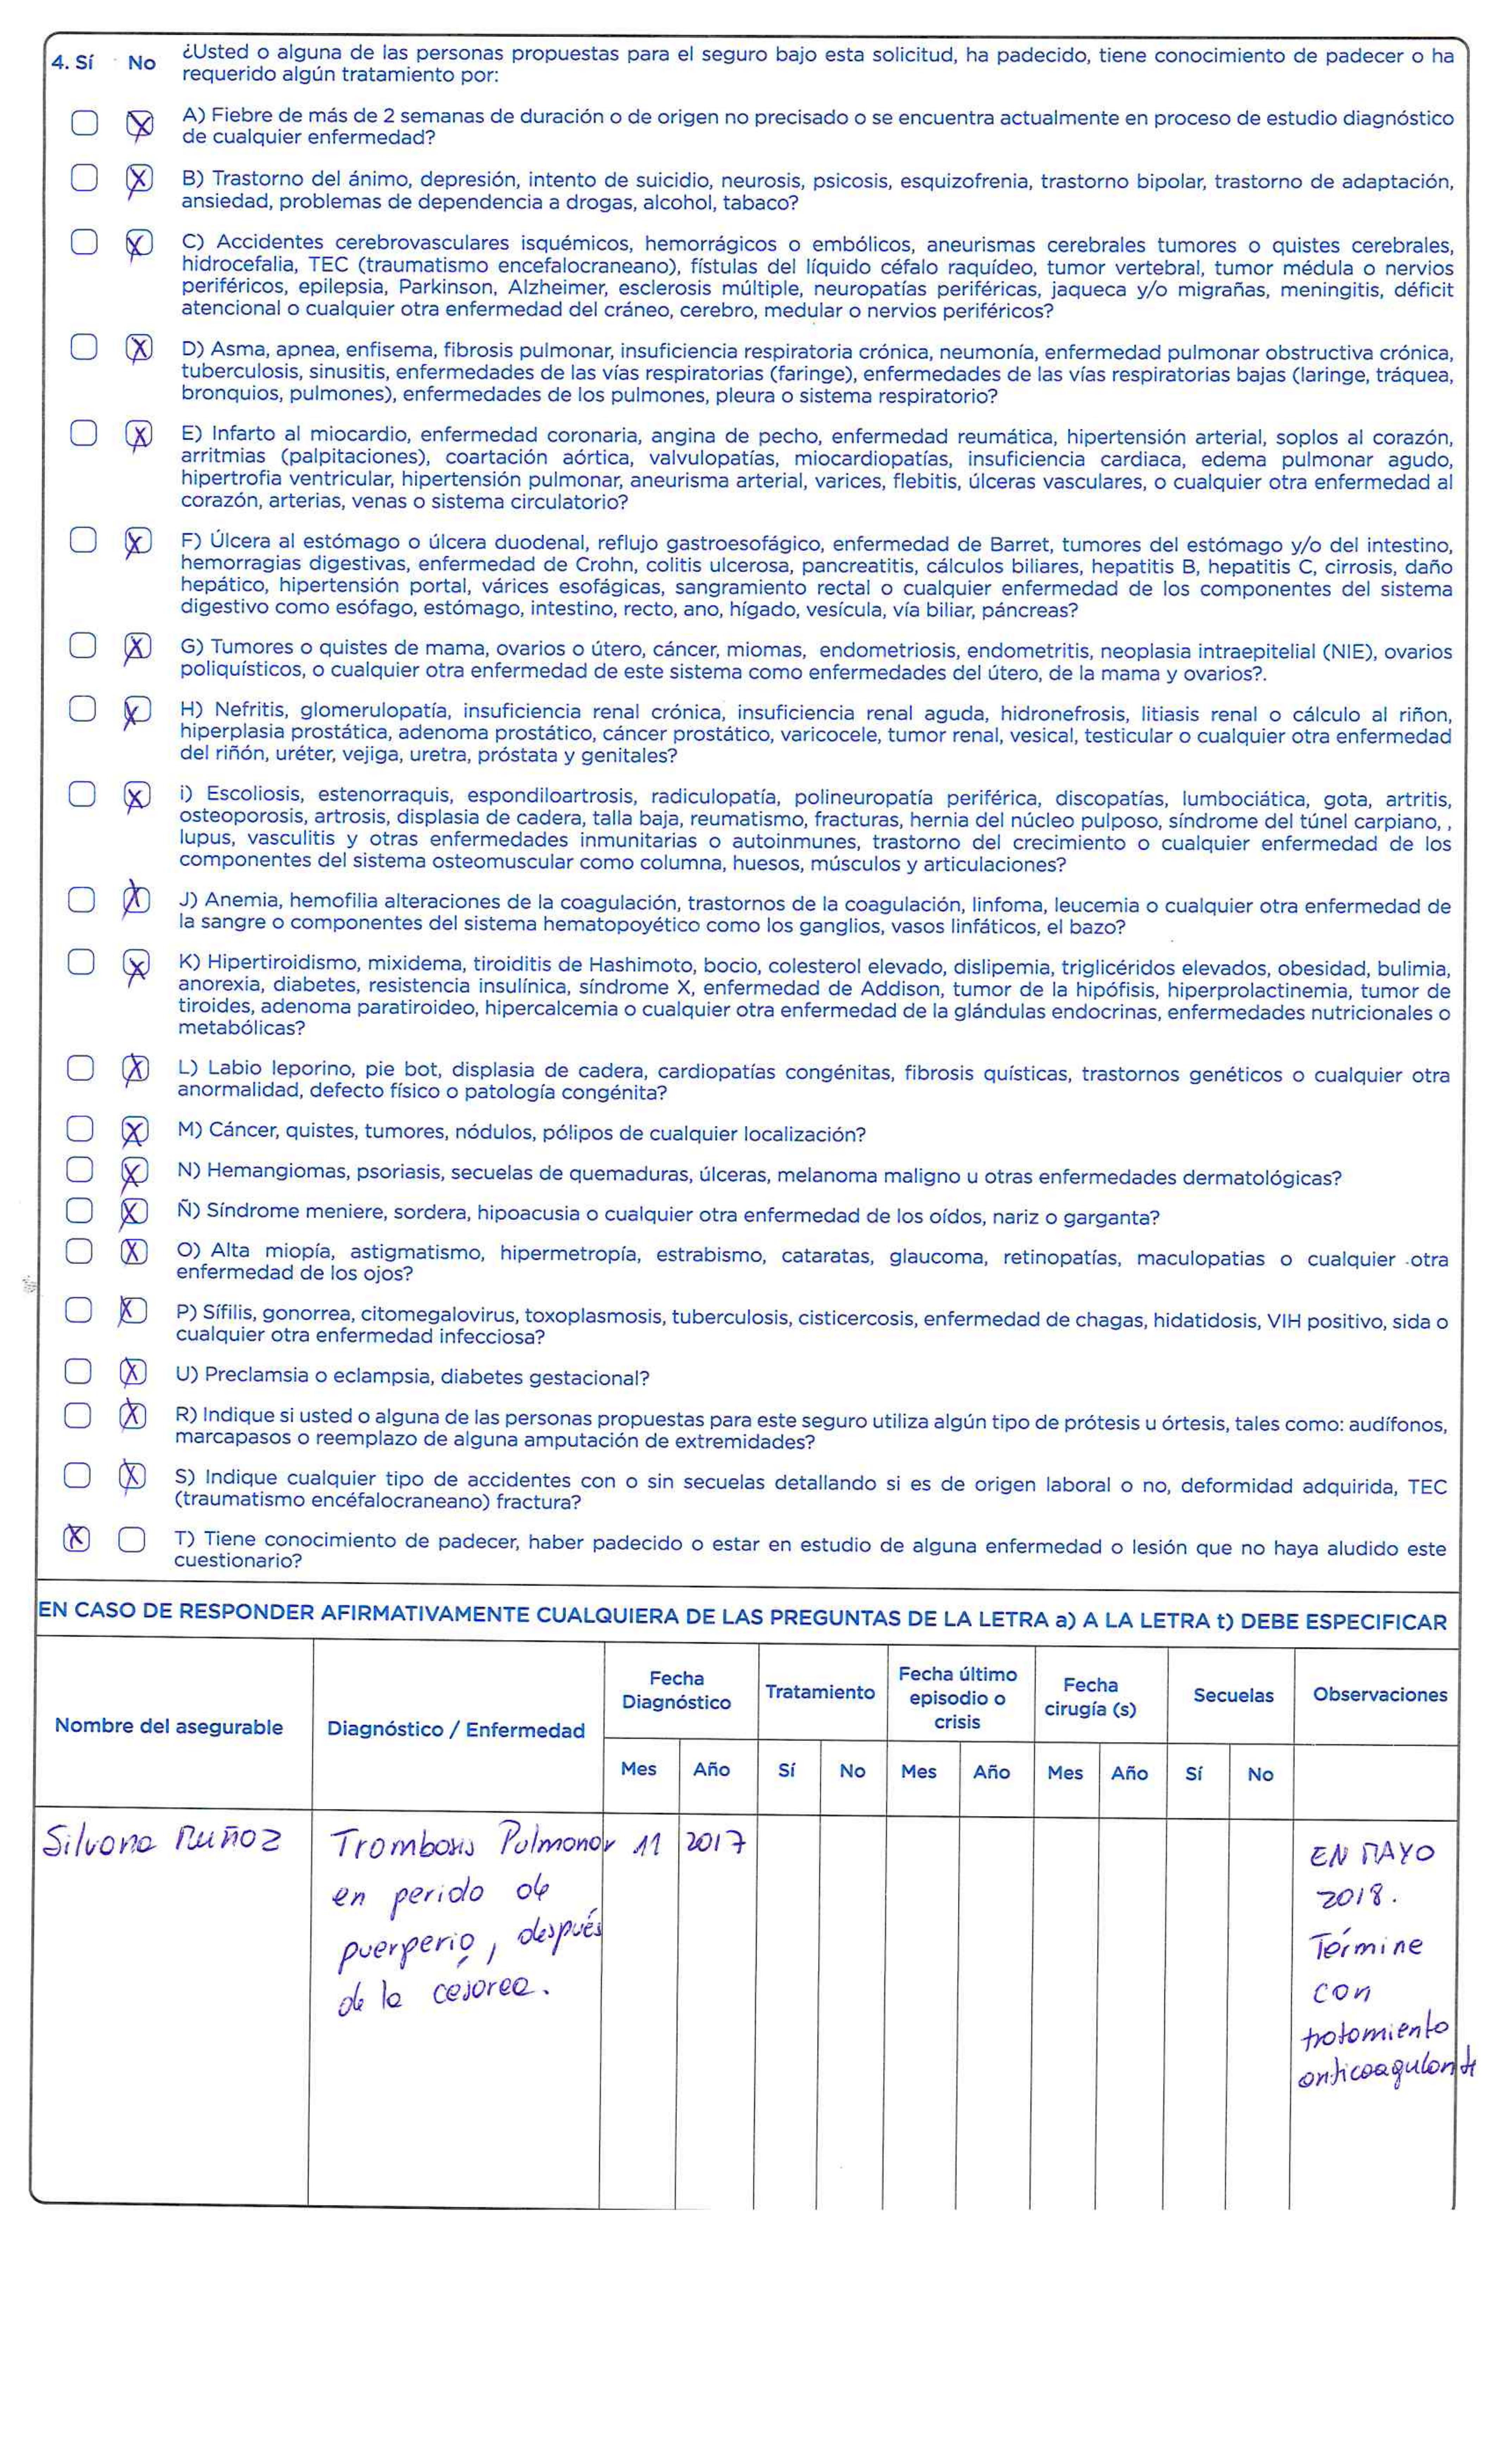 4. Sí No ¿Usted o alguna de las personas propuestas para el seguro bajo esta solicitud, ha padecido, tiene conocimiento de padecer o ha
requerido algún tratamiento por:
A) Fiebre de más de 2 semanas de duración o de origen no precisado o se encuentra actualmente en proceso de estudio diagnóstico
de cualquier enfermedad?
B) Trastorno del ánimo, depresión, intento de suicidio, neurosis, psicosis, esquizofrenia, trastorno bipolar, trastorno de adaptación,
ansiedad, problemas de dependencia a drogas, alcohol, tabaco?
C) Accidentes cerebrovasculares isquémicos, hemorrágicos o embólicos, aneurismas cerebrales tumores o quistes cerebrales,
hidrocefalia, TEC (traumatismo encefalocraneano), fístulas del líquido céfalo raquídeo, tumor vertebral, tumor médula o nervios
periféricos, epilepsia, Parkinson, Alzheimer, esclerosis múltiple, neuropatías periféricas, jaqueca y/o migrañas, meningitis, déficit
atencional o cualquier otra enfermedad del cráneo, cerebro, medular o nervios periféricos?
D) Asma, apnea, enfisema, fibrosis pulmonar, insuficiencia respiratoria crónica, neumonía, enfermedad pulmonar obstructiva crónica,
tuberculosis, sinusitis, enfermedades de las vías respiratorias (faringe), enfermedades de las vías respiratorias bajas (laringe, tráquea,
bronquios, pulmones), enfermedades de los pulmones, pleura o sistema respiratorio?
E) Infarto al miocardio, enfermedad coronaria, angina de pecho, enfermedad reumática, hipertensión arterial, soplos al corazón,
arritmias (palpitaciones), coartación aórtica, valvulopatías, miocardiopatías, insuficiencia cardiaca, edema pulmonar agudo,
hipertrofia ventricular, hipertensión pulmonar, aneurisma arterial, varices, flebitis, úlceras vasculares, o cualquier otra enfermedad al
corazón, arterias, venas o sistema circulatorio?
F) Úlcera al estómago o úlcera duodenal, reflujo gastroesofágico, enfermedad de Barret, tumores del estómago y/o del intestino,
hemorragias digestivas, enfermedad de Crohn, colitis ulcerosa, pancreatitis, cálculos biliares, hepatitis B, hepatitis C, cirrosis, daño
hepático, hipertensión portal, várices esofágicas, sangramiento rectal o cualquier enfermedad de los componentes del sistema
digestivo como esófago, estómago, intestino, recto, ano, hígado, vesícula, vía biliar, páncreas?
G) Tumores o quistes de mama, ovarios o útero, cáncer, miomas, endometriosis, endometritis, neoplasia intraepitelial (NIE), ovarios
poliquísticos, o cualquier otra enfermedad de este sistema como enfermedades del útero, de la mama y ovarios?.
H) Nefritis, glomerulopatía, insuficiencia renal crónica, insuficiencia renal aguda, hidronefrosis, litiasis renal o cálculo al riñon,
hiperplasia prostática, adenoma prostático, cáncer prostático, varicocele, tumor renal, vesical, testicular o cualquier otra enfermedad
del riñón, uréter, vejiga, uretra, próstata y genitales?
i) Escoliosis, estenorraquis, espondiloartrosis, radiculopatía, polineuropatía periférica, discopatías, lumbociática, gota, artritis,
osteoporosis, artrosis, displasia de cadera, talla baja, reumatismo, fracturas, hernia del núcleo pulposo, síndrome del túnel carpiano, ,
lupus, vasculitis y otras enfermedades inmunitarias o autoinmunes, trastorno del crecimiento o cualquier enfermedad de los
componentes del sistema osteomuscular como columna, huesos, músculos y articulaciones?
J) Anemia, hemofilia alteraciones de la coagulación, trastornos de la coagulación, linfoma, leucemia o cualquier otra enfermedad de
la sangre o componentes del sistema hematopoyético como los ganglios, vasos linfáticos, el bazo?
K) Hipertiroidismo, mixidema, tiroiditis de Hashimoto, bocio, colesterol elevado, dislipemia, triglicéridos elevados, obesidad, bulimia,
anorexia, diabetes, resistencia insulínica, síndrome X, enfermedad de Addison, tumor de la hipófisis, hiperprolactinemia, tumor de
tiroides, adenoma paratiroideo, hipercalcemia o cualquier otra enfermedad de la glándulas endocrinas, enfermedades nutricionales o
metabólicas?
L) Labio leporino, pie bot, displasia de cadera, cardiopatías congénitas, fibrosis quísticas, trastornos genéticos o cualquier otra
anormalidad, defecto físico o patología congénita?
M) Cáncer, quistes, tumores, nódulos, pólipos de cualquier localización?
N) Hemangiomas, psoriasis, secuelas de quemaduras, úlceras, melanoma maligno u otras enfermedades dermatológicas?
Ñ) Síndrome meniere, sordera, hipoacusia o cualquier otra enfermedad de los oídos, nariz o garganta?
O) Alta miopía, astigmatismo, hipermetropía, estrabismo, cataratas, glaucoma, retinopatías, maculopatias o cualquier otra
enfermedad de los ojos?
P) Sífilis, gonorrea, citomegalovirus, toxoplasmosis, tuberculosis, cisticercosis, enfermedad de chagas, hidatidosis, VIH positivo, sida o
cualquier otra enfermedad infecciosa?
U) Preclamsia o eclampsia, diabetes gestacional?
R) Indique si usted o alguna de las personas propuestas para este seguro utiliza algún tipo de prótesis u órtesis, tales como: audífonos,
marcapasos o reemplazo de alguna amputación de extremidades?
S) Indique cualquier tipo de accidentes con o sin secuelas detallando si es de origen laboral o no, deformidad adquirida, TEC
(traumatismo encéfalocraneano) fractura?
T) Tiene conocimiento de padecer, haber padecido o estar en estudio de alguna enfermedad o lesión que no haya aludido este
cuestionario?
EN CASO DE RESPONDER AFIRMATIVAMENTE CUALQUIERA DE LAS PREGUNTAS DE LA LETRA a) A LA LETRA t) DEBE ESPECIFICAR
Nombre del asegurable
Diagnóstico / Enfermedad
Fecha
Diagnóstico
Tratamiento
Fecha último
episodio o
crisis
Fecha
cirugía (s)
Secuelas
Observaciones
Mes Año Sí No Mes Año Mes Año Sí No
Silvana Muñoz
Trombosis Pulmonar
en perido de
puerperio, después
de la cesarea.
11 2017
EN MAYO
2018.
Términe
con
tratamiento
anticoagulante